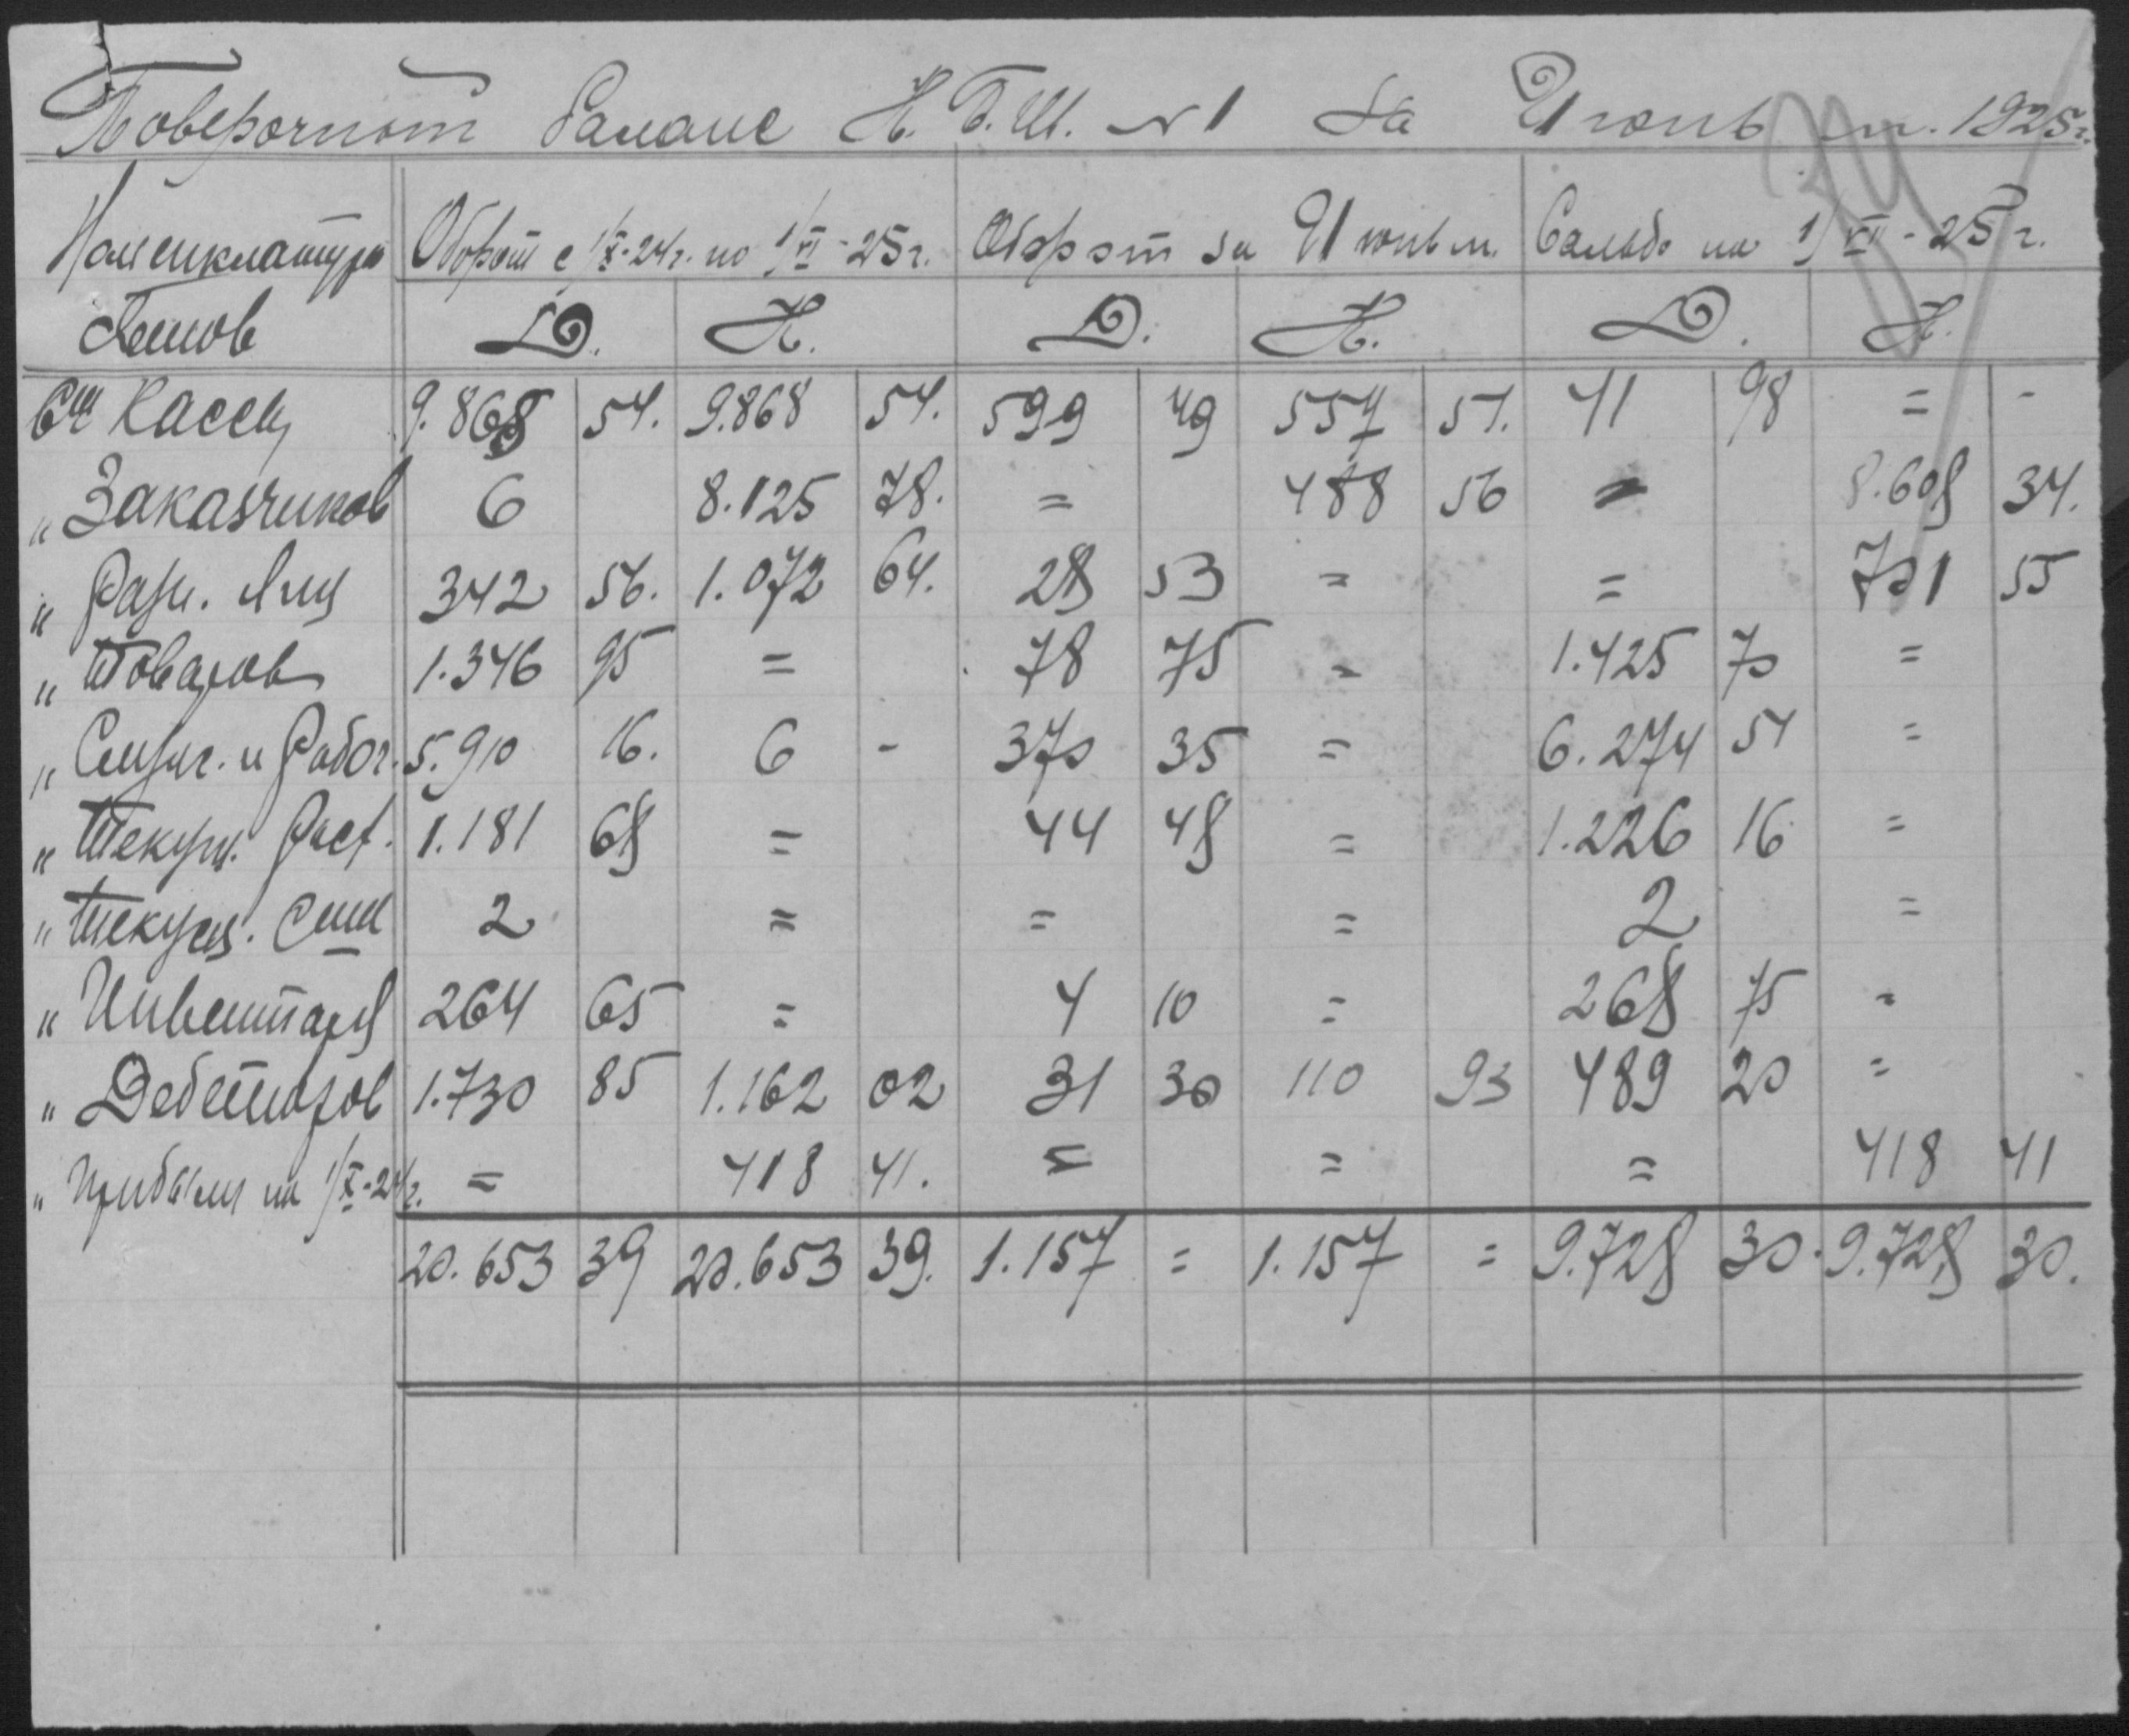 Поверочный баланс К. Б. Ш. № 1 за Июнь м. 1925 г.
Номенклатура Оборот с 1/X-24 г. по 1/VI-25 г. Оборот за Июнь м. Сальдо на 1/VII-25 г.
Счетов Д. К. Д. К. Д. К.
Сч Кассы 9.868 54. 9.868 54. 599 49 557 51. 41 98 = -
„ Заказчиков 6 8.125 78. = 488 56 = 8.608 34.
„ Разн. Лиц 342 56. 1.072 64. 28 53 = = 701 55
„ Товаров 1.346 95 = 78 75 = 1.425 70 =
„ Служ. и Рабоч. 5.910 16. 6 - 370 35 = 6.274 51 =
„ Текущ. Расх. 1.181 68 = 44 48 = 1.226 16 =
„ Текущ. Счет 2 = = = 2 =
„ Инвентаря 264 65 = 4 10 = 268 75 =
„ Дебеторов 1.730 85 1.162 02 31 30 110 93 489 20 =
„ Прибыли на 1/X-24 г. = 418 41. = = = 418 41
20.653 39 20.653 39. 1.157 = 1.157 = 9.728 30. 9.728 30.